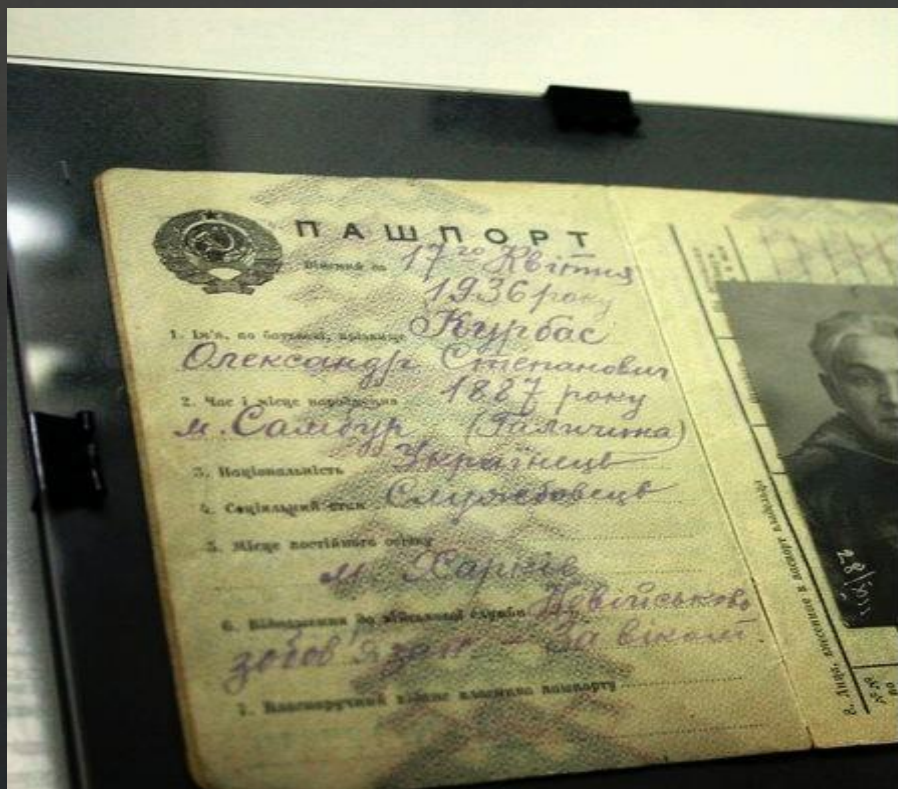 ПАШПОРТ
Дійсний до 17го Квітня
1936 року
1. Ім'я, по батькові, прізвище Курбас
Олександр Степанович
2. Час і місце народження 1887 року
м. Самбур (Галичина)
3. Національність Українець
4. Соціальний стан Службовець
5. Місце постійного
м. Харків
6. Відношення до військової служби Невійськово
зобов'язан — За віком.
7. Власноручний підпис власника пашпорту
28/VIII
8. внесені в паспорт
№№